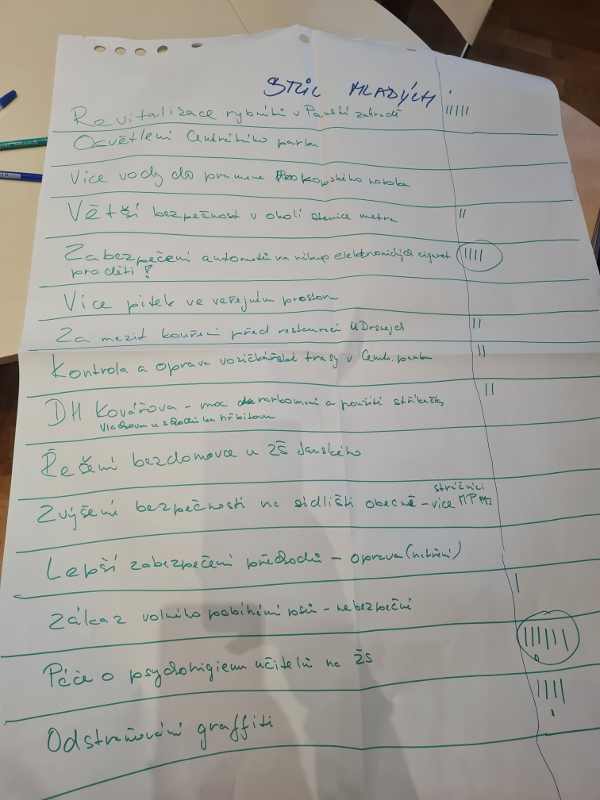 STŮL MLADÝCH
Revitalizace rybníků v Panské zahradě
Osvětlení Centrálního parku
Více vody do pramene Prokopského potoka
Větší bezpečnost v okolí stanice metra
Zabezpečení automatů na nákup elektronických cigaret
pro děti!
Více pítek ve veřejném prostoru
Zamezit kouření před restaurací U Drsnejch
Kontrola a oprava vozíčkářské trasy v Centr. parku
DH Kovářova - moc narkomanů a použité stříkačky
Vlachova u schodů ke hřbitovu
Řešení bezdomovce u ZŠ Janského
Zvýšení bezpečnosti na sídlišti obecně - více MP
strážníci
Lepší zabezpečení přechodů - oprava
Zákaz volného pobíhání psů - nebezpeční
Péče o psychohigienu učitelů na ZŠ
Odstraňování graffiti